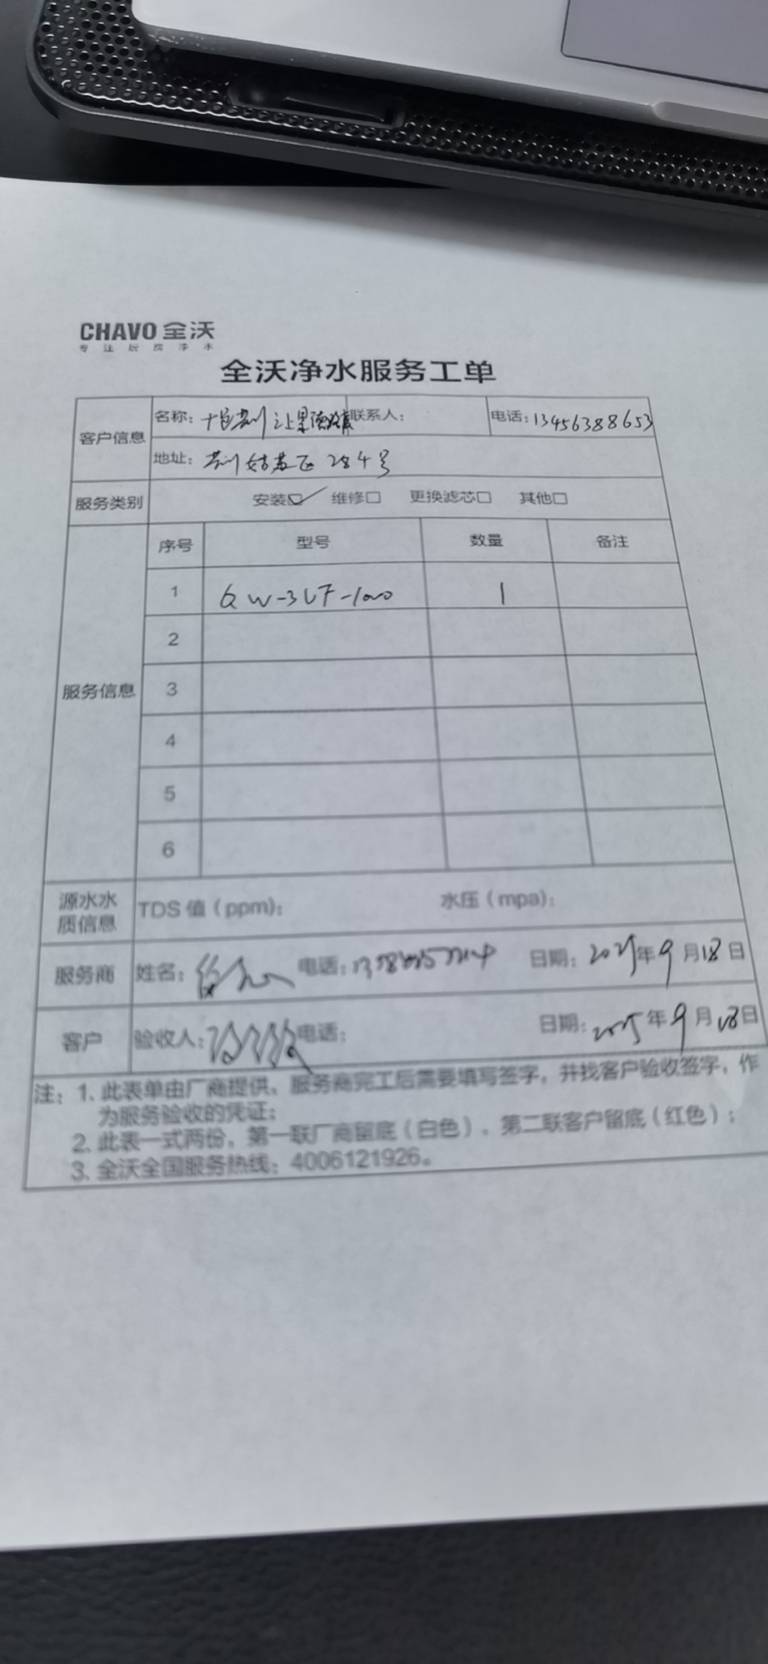 CHAVO 全沃
专注厨房净水
全沃净水服务工单
客户信息 名称: 联系人: 电话: 13456388653
地址: 苏州姑苏区 284号
服务类别 安装☑ 维修□ 更换滤芯□ 其他□
服务信息 序号 型号 数量 备注
1 QW-3UF-1000 1
2
3
4
5
6
源水水质信息 TDS 值(ppm): 水压(mpa):
服务商 姓名: 电话: 日期: 2025年9月18日
客户 验收人: 电话: 日期: 2025年9月18日
注: 1. 此表单由厂商提供、服务商完工后需要填写签字，并找客户验收签字，作
为服务验收的凭证;
2. 此表一式两份，第一联厂商留底(白色)、第二联客户留底(红色);
3. 全沃全国服务热线: 4006121926。